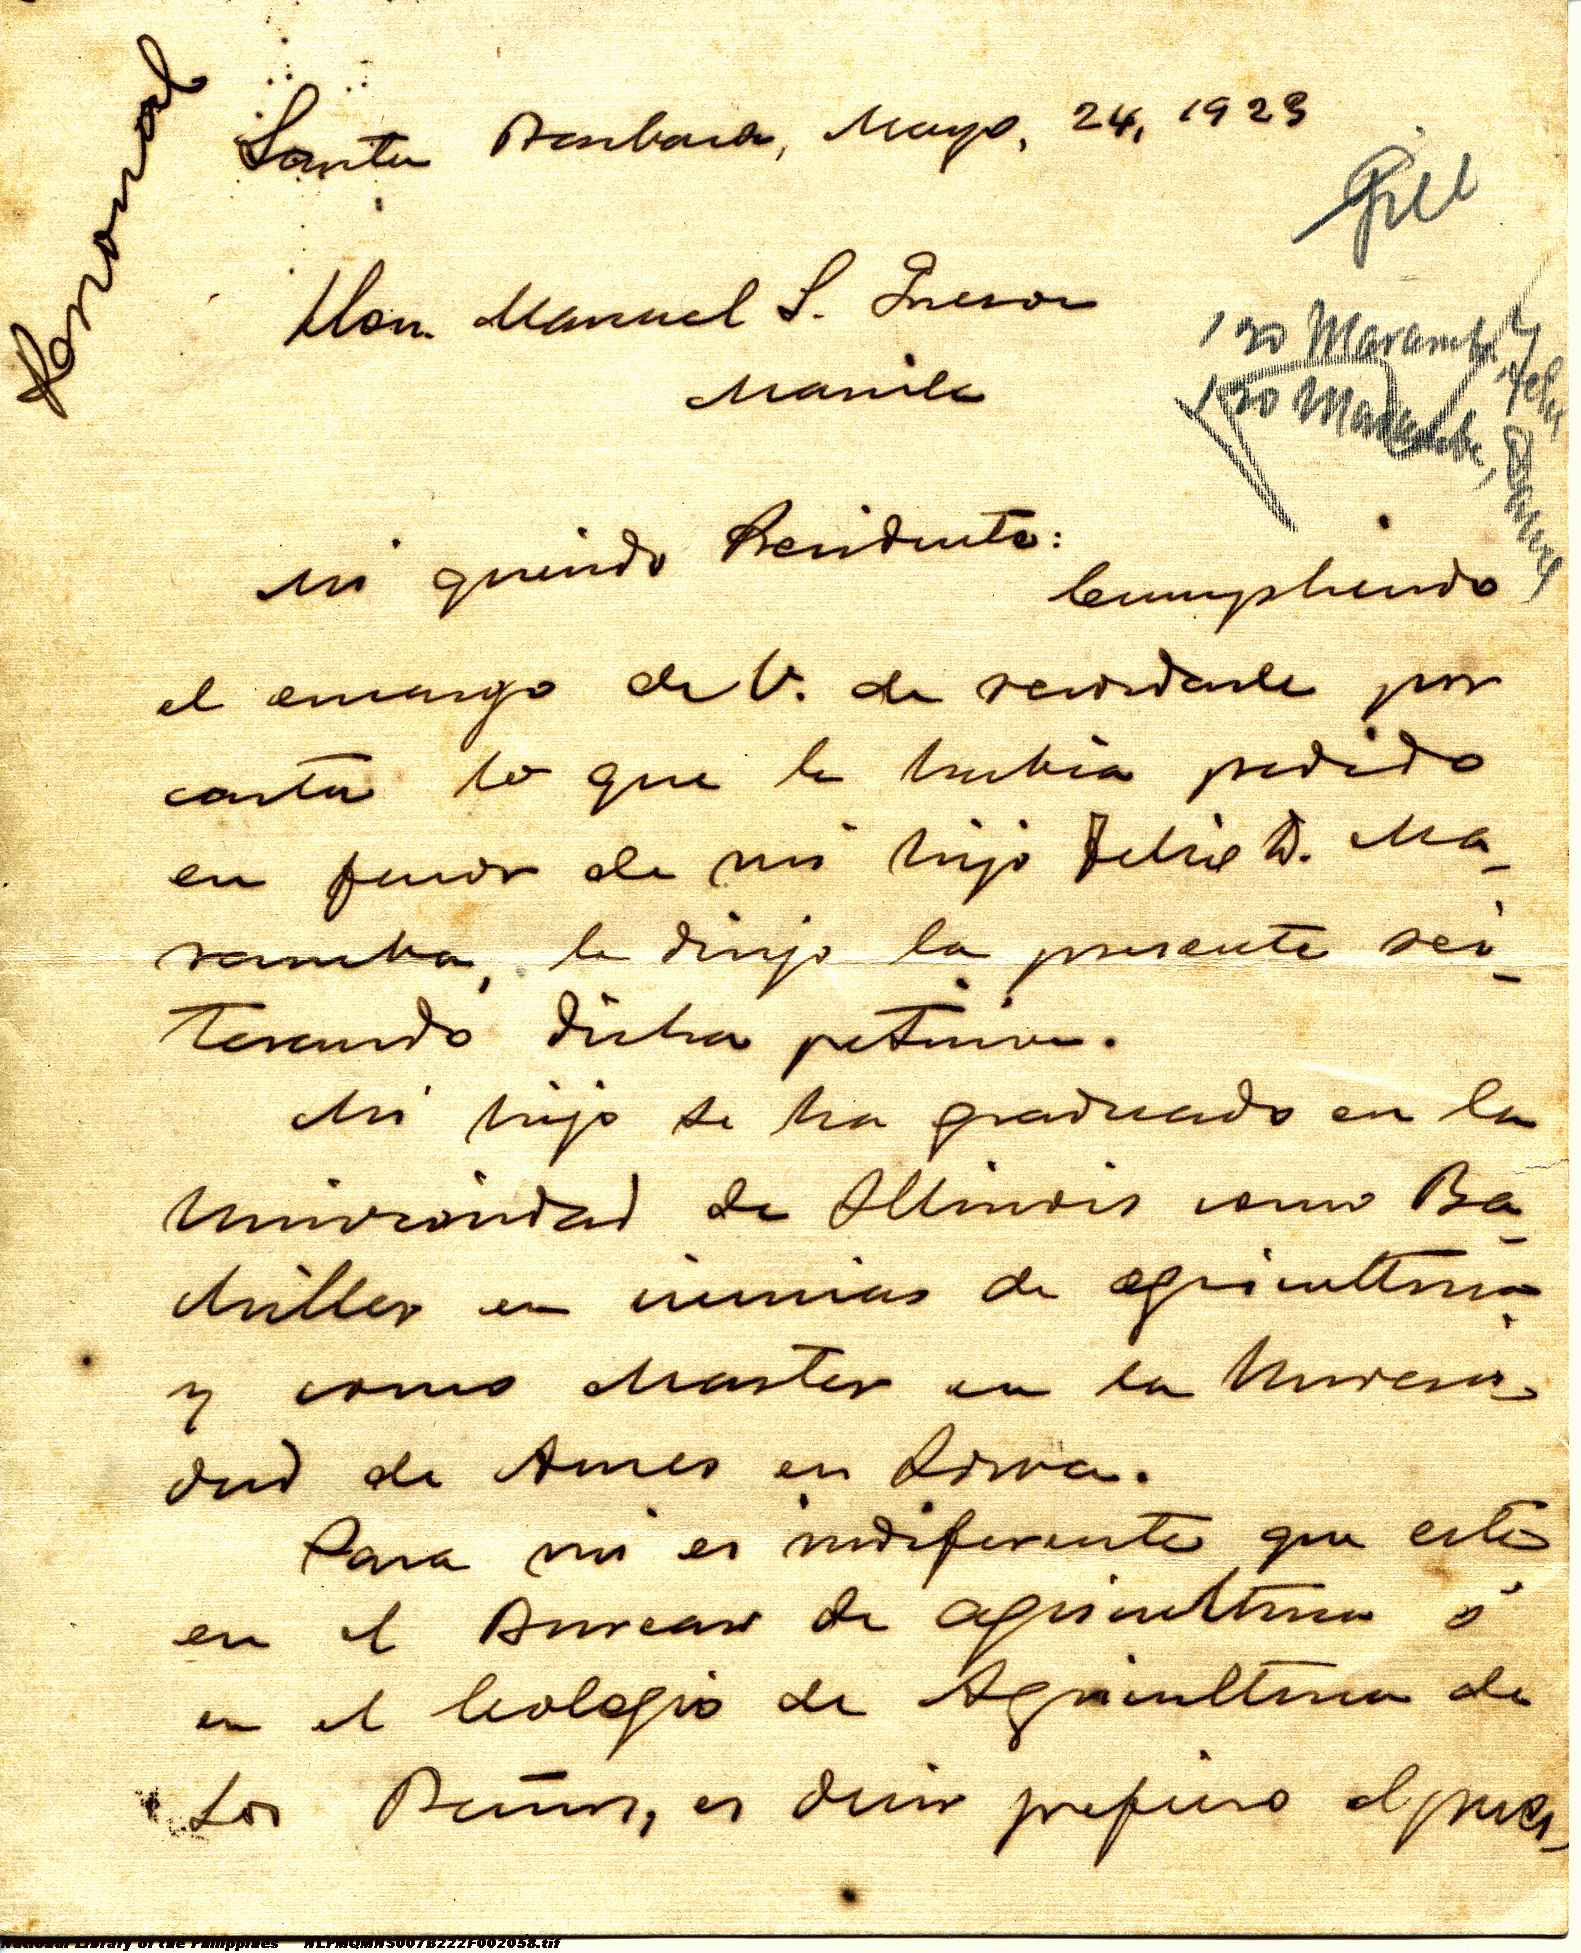 Personal
Santa Barbara, Mayo, 24, 1923
File
Hon. Manuel L. Quezon
Manila
120 Maramba,
120 Maramba, Felix
Mi querido Presidente:
Cumpliendo
el encargo de V. de recordarle por
carta lo que le habia pedido
en favor de mi hijo Felix D. Ma-
ramba, le dirijo la presente rei-
terando dicha peticion.
Mi hijo se ha graduado en la
Universidad de Illinois como Ba-
chiller en ciencias de agricultura,
y como Master en la Universi-
dad de Ames en Iowa.
Para mi es indiferente que esté
en el Bureau de agricultura ó
en el Colegio de Agricultura de
Los Baños, es decir prefiero el pues-
National Library of the Philippines NLPMQMNS007B222F002058.tif